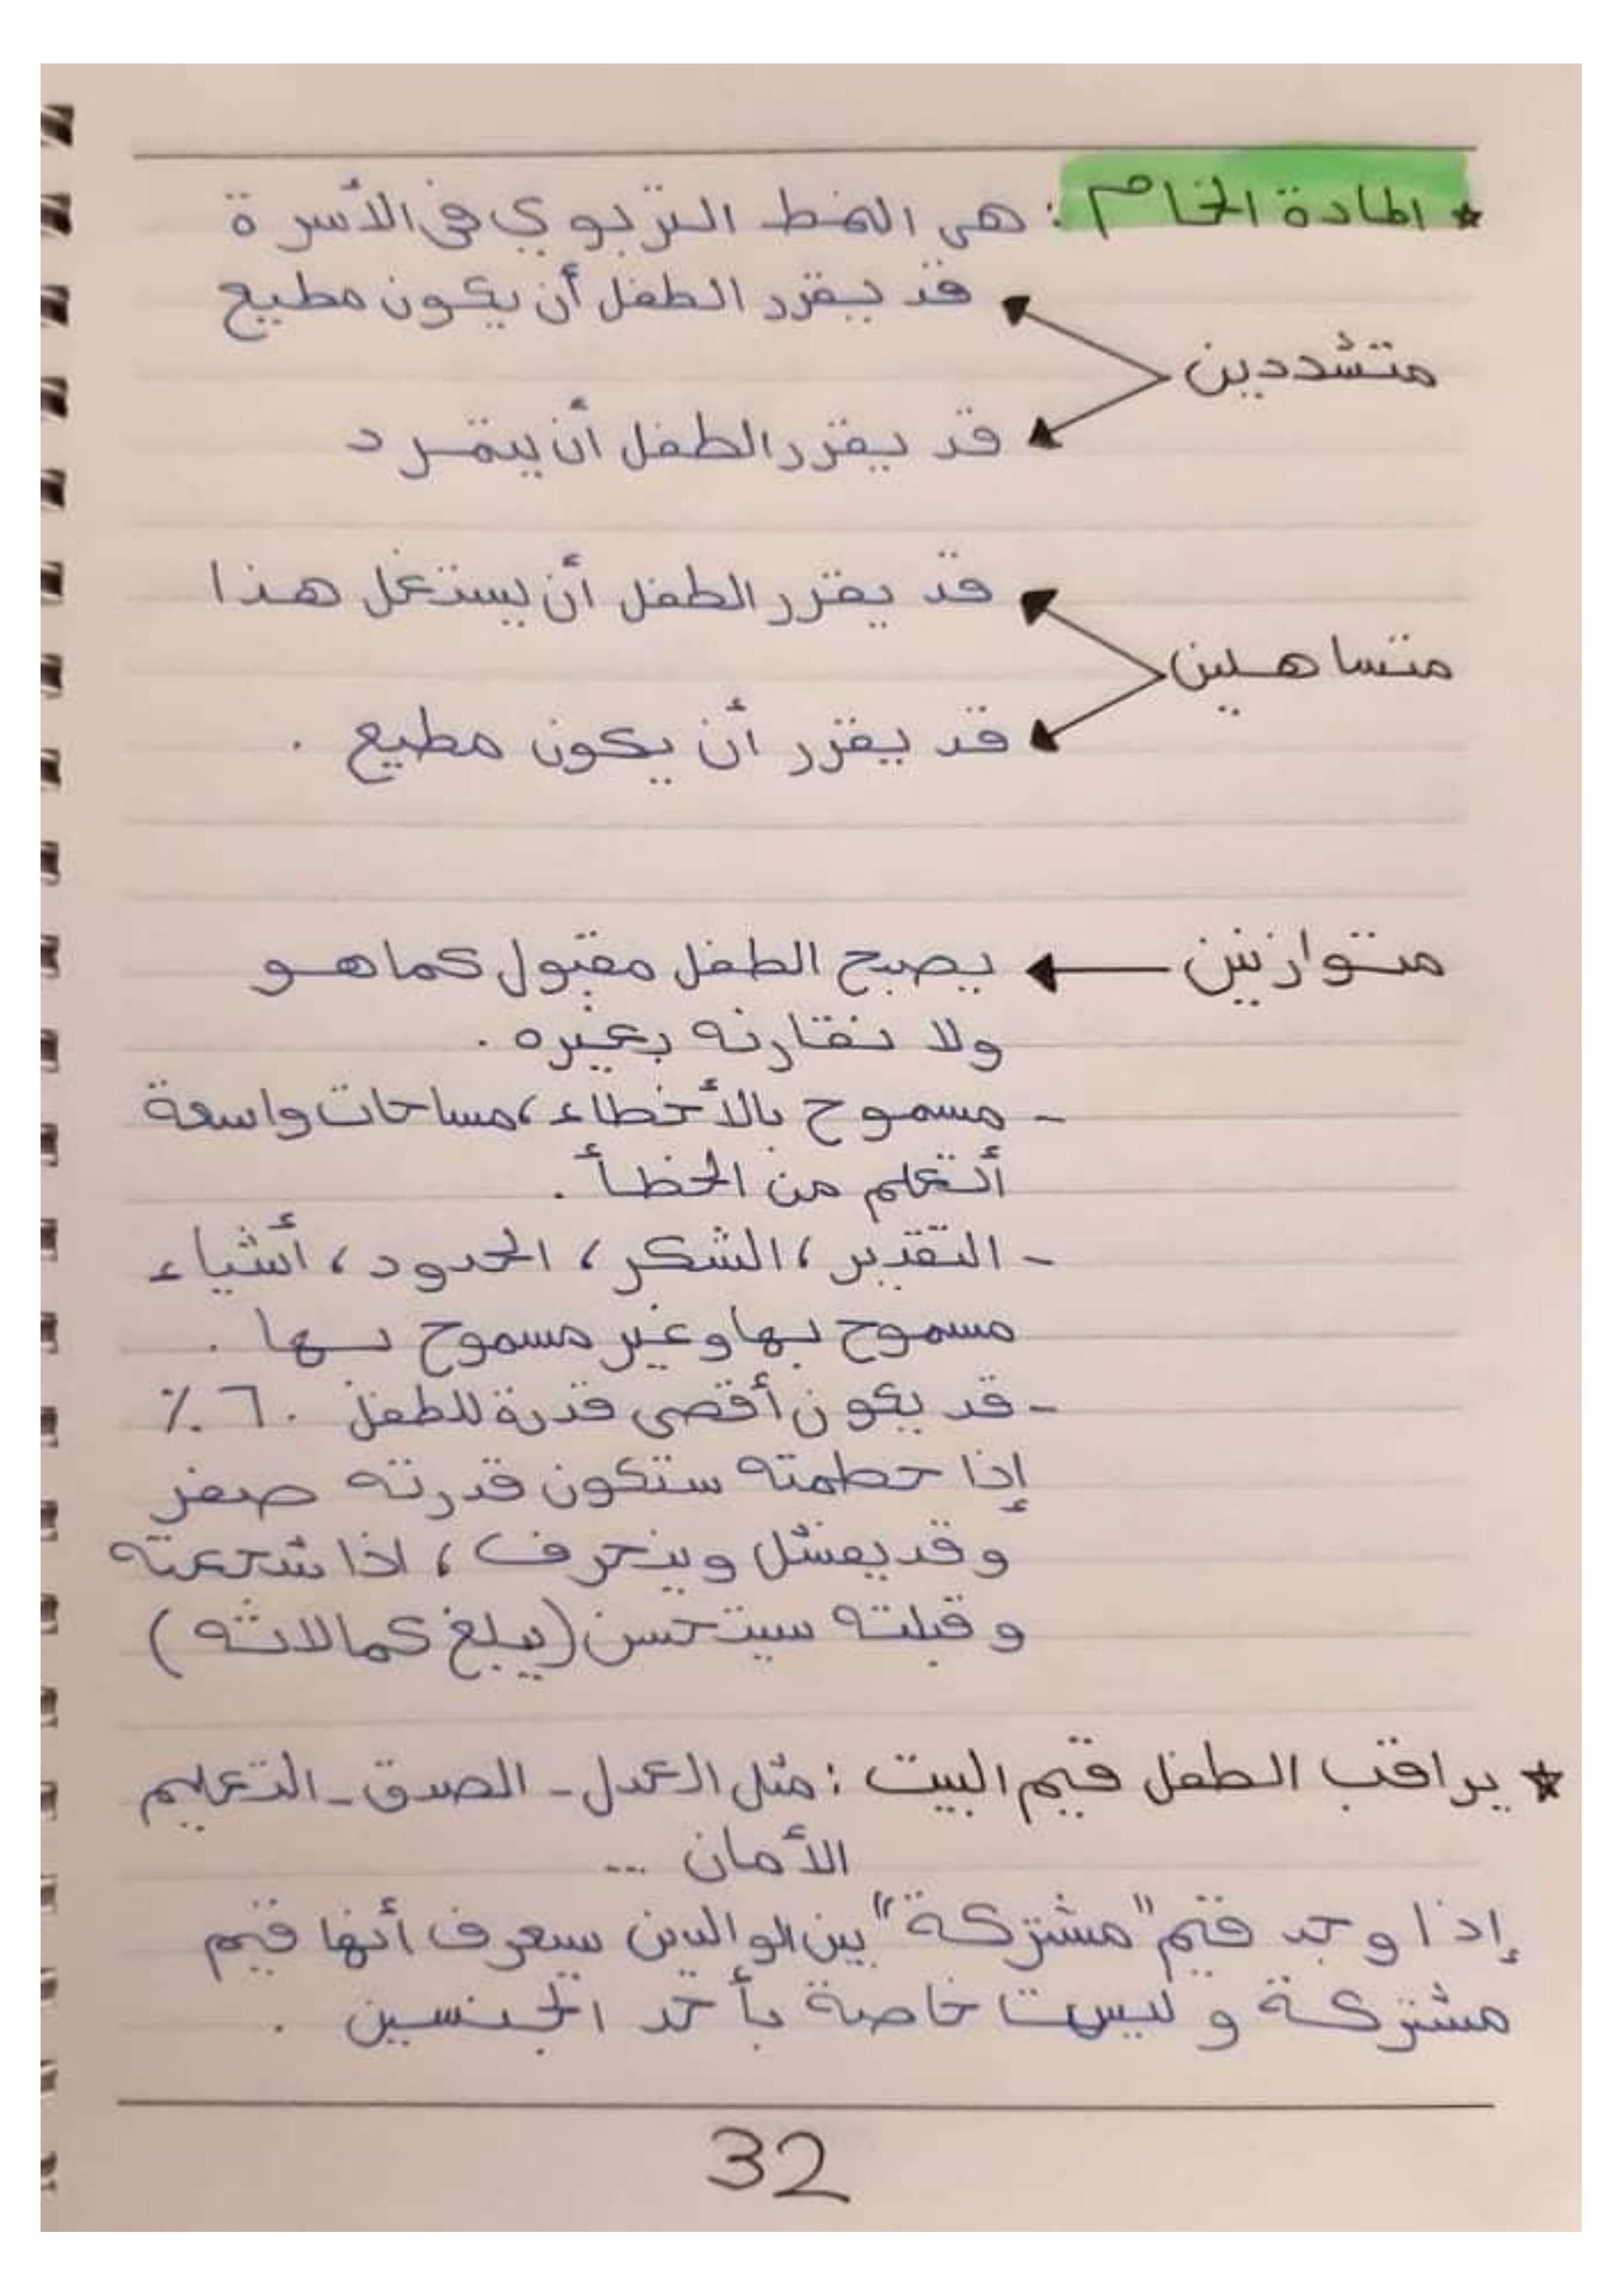 * المادة الخام : هي النمط التربوي في الأسرة
قد يقرر الطفل أن يكون مطيع
متشددين
قد يقرر الطفل أن يتمرد
قد يقرر الطفل أن يستغل هذا
متساهلين
قد يقرر أن يكون مطيع .
متوازنين ← يصبح الطفل مقبول كما هو
ولا نقارنه بغيره .
- مسموح بالأخطاء ، مساحات واسعة
أتعلم من الخطأ .
- التقدير ، الشكر ، الحدود ، أشياء
مسموح بها وغير مسموح بها .
- قد يكون أقصى قدرة للطفل ٦٠٪
إذا حطمته ستكون قدرته صفر
و قد يفشل وينحرف ، اذا شجعته
و قبلته سيتحسن (يبلغ كمالاته)
* يراقب الطفل قيم البيت : مثل العدل - الصدق - التعليم
الأمان ...
إذا وجد قيم "مشتركة" بين الوالدين سيعرف أنها قيم
مشتركة و ليست خاصة بأحد الجنسين .
32